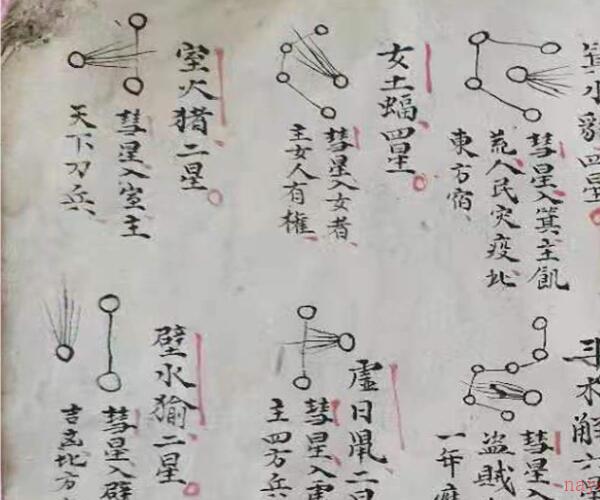 箕水豹四星
彗星入箕主飢
荒人民灾疫此
東方宿
女土蝠四星
彗星入女者
主女人有權
室火猪二星
彗星入室主
天下刀兵
斗木解六星
彗星入
盗賊
一年
虛日鼠二星
彗星入虛
主四方兵
壁水㺄二星
彗星入壁
吉凶北方